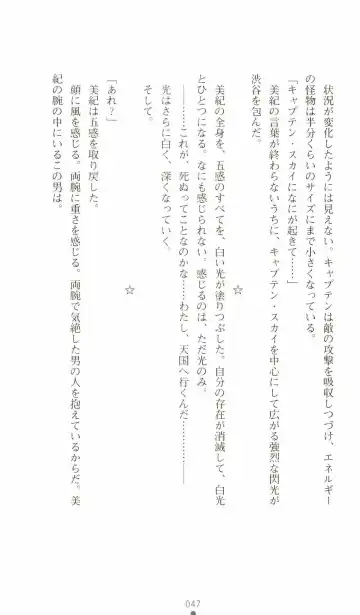 状況が変化したようには見えない。キャプテンは敵の攻撃を吸収しつづけ、エネルギー
の怪物は半分くらいのサイズにまで小さくなっている。
「キャプテン・スカイになにが起きて……」
美紀の言葉が終わらないうちに、キャプテン・スカイを中心にして広がる強烈な閃光が
渋谷を包んだ。
☆
美紀の全身を、五感のすべてを、白い光が塗りつぶした。自分の存在が消滅して、白光
とひとつになる。なにも感じられない。感じるのは、ただ光のみ。
―――これが、死ぬってことなのかな――わたし、天国へ行くんだ―――――
光はさらに白く、深くなっていく。
そして。
☆
「あれ?」
美紀は五感を取り戻した。
顔に風を感じる。両腕に重さを感じる。両腕で気絶した男の人を抱えているからだ。美
紀の腕の中にいるこの男は。
047